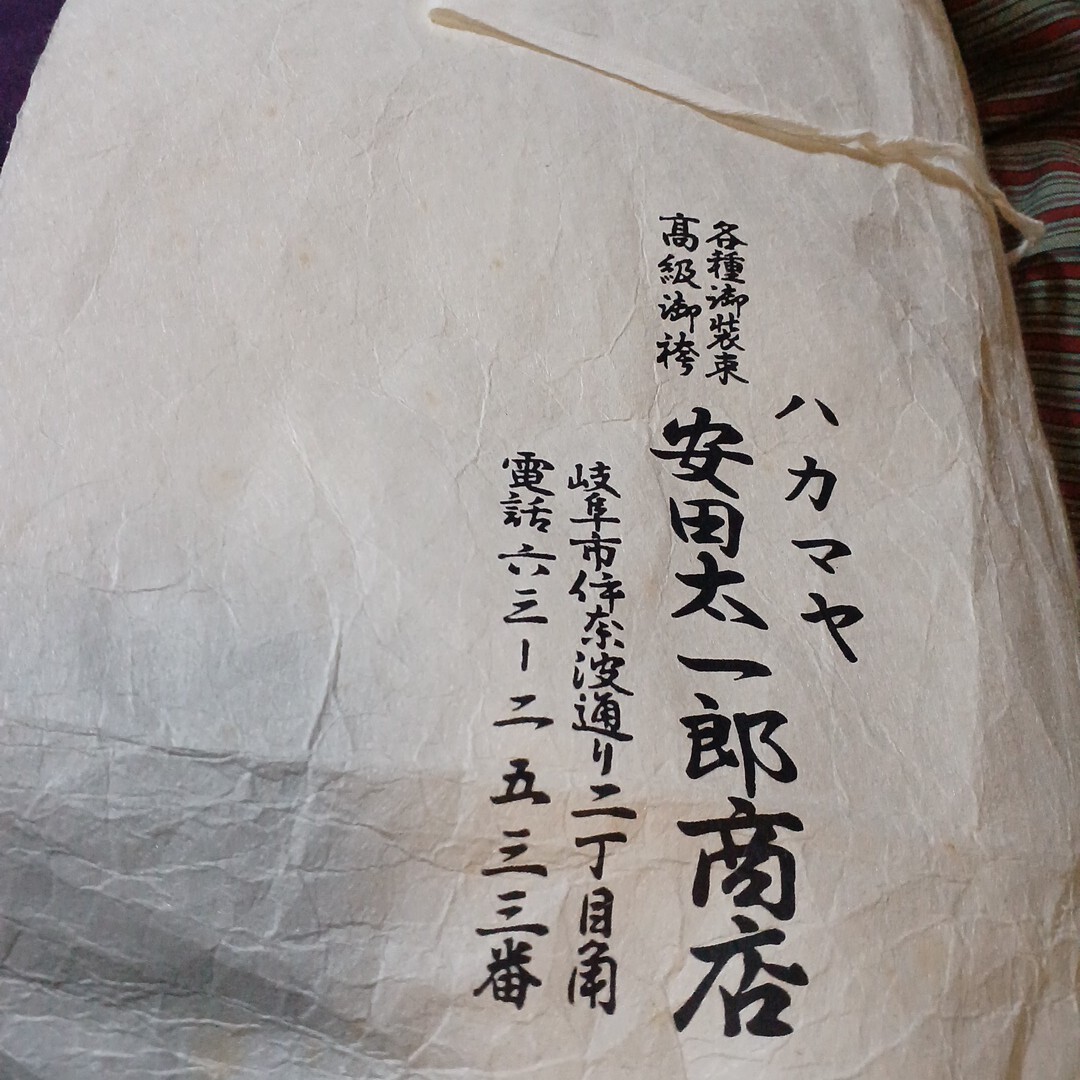 ハカマヤ
各種御装束
高級御袴
安田太一郎商店
岐阜市伊奈波通り二丁目角
電話六三ー二五三三番